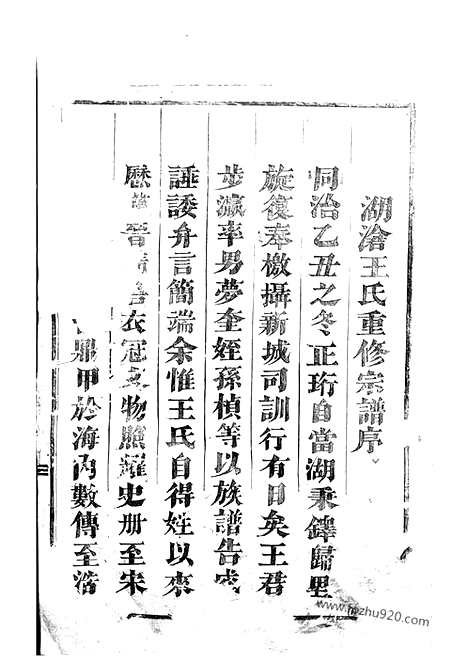 湖滄王氏重修宗譜序
同治乙丑之冬正珩自當湖秉鐸歸里
旋復奉檄攝新城司訓行有日矣王君
步瀛率男夢奎姪孫楨等以族譜告成
諈諉弁言簡端余惟王氏自得姓以來
歷晉衣冠文物照耀史册至宋
鼎甲於海內數傳至浩